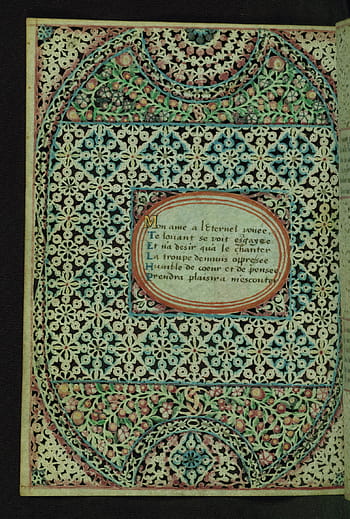 Mon ame a l'Eternel vouee
Te louant se voit esgayee
Et na desir qua le chanter
La troupe dennuis opresee
Humble de coeur et de pensee
Prendra plaisir a mescouter